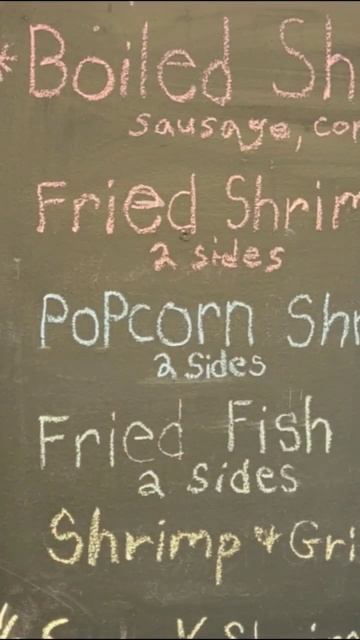 *Boiled Sh
Sausage, cor
Fried Shrim
2 sides
PoPcorn Shr
2 Sides
Fried Fish
2 Sides
Shrimp & Gri